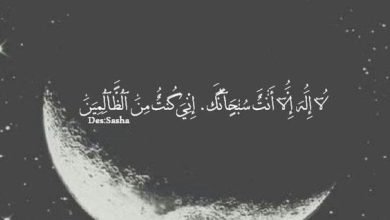 لَا إِلَٰهَ إِلَّا أَنْتَ سُبْحَانَكَ. إِنِّي كُنْتُ مِنَ ٱلظَّالِمِينَ
Des:Sasha